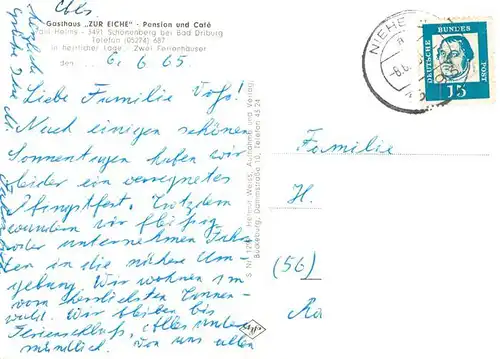 Gasthaus „ZUR EICHE" - Pension und Café
Paul Helms - 3491 Schönenberg bei Bad Driburg
Telefon (05274) 687
in herrlicher Lage - Zwei Ferienhäuser
den 6. 6. 65.
Liebe Familie Voß!
Nach einigen schönen
Sonnentagen haben wir
leider ein verregnetes
Pfingstfest. Trotzdem
wandern wir fleißig
oder unternehmen Fahr-
ten in die nähere Um-
gebung. Wir wohnen im
vom herrlichsten Tannen-
wald. Wir bleiben bis
Ferienschluß, Alles andere
mündlich. Von uns allen
herzliche
Grüße
S Nr.
Helmut Weiss, Aufnahme und Verlag,
Bückeburg, Dammstraße 10, Telefon 43 24
NIEHE
DEUTSCHE BUNDESPOST
15
Familie
H.
(56)
Ra